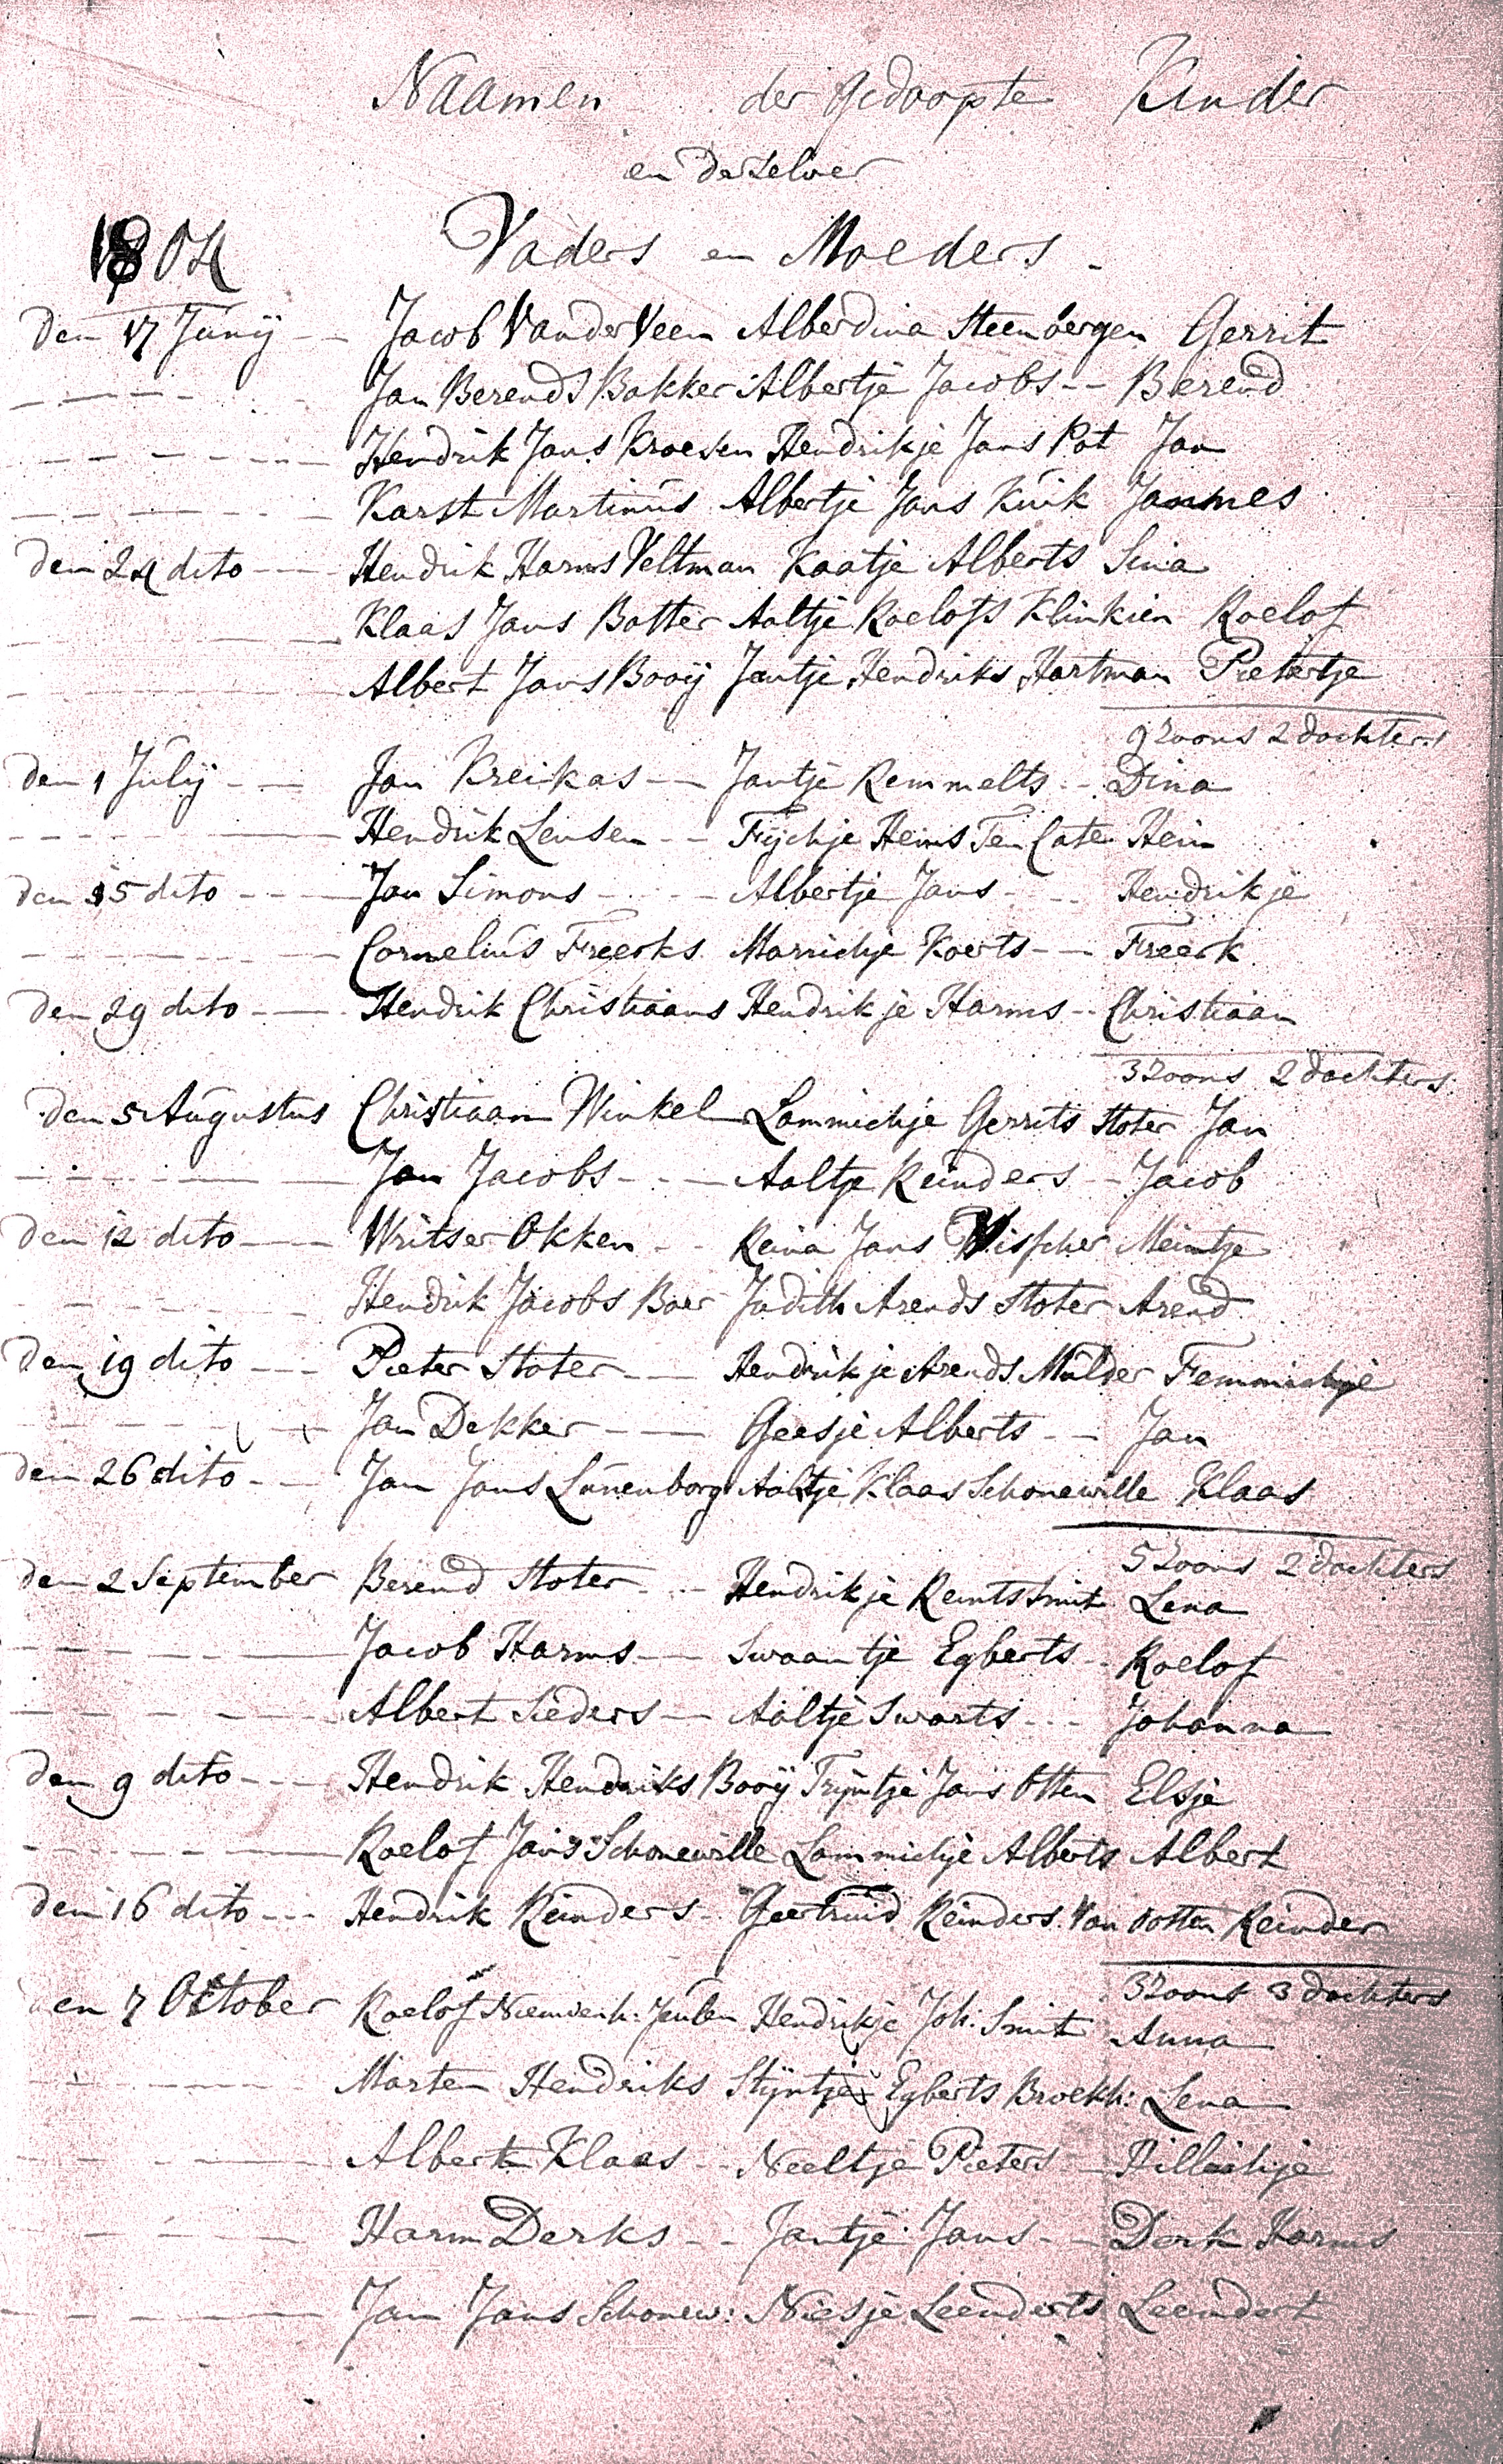 Naamen der Gedoopte Kinder
en derselver
1804 Vaders en Moeders
Den 17 Junij Jacob Van der Veen Alberdina Steenbergen Gerrit
Jan Berends Bakker Albertje Jacobs Berend
Hendrik Jans Kroesen Hendrikje Jans Pot Jan
Karst Martinus Albertje Jans Kuik Jannes
Den 24 dito Hendrik Harms Veltman Kaatje Alberts Sina
Klaas Jans Botter Aaltje Roelofs Klinkien Roelof
Albert Jans Booij Jantje Hendriks Hartman Pietertje
9 Zoons 2 dochters
Den 1 Julij Jan Kreikas Jantje Remmelts Dina
Hendrik Lensen Fijchje Heins Ten Cate Hein
Den 15 dito Jan Simons Albertje Jans Hendrikje
Cornelius Freerks Marrichje Koerts Freerk
Den 29 dito Hendrik Christiaans Hendrikje Harms Christiaan
3 Zoons 2 dochters
Den 5 Augustus Christiaan Winkel Lammichje Gerrits Stoter Jan
Jan Jacobs Aaltje Reinders Jacob
Den 12 dito Writser Okken Reina Jans Visscher Meintje
Hendrik Jacobs Boer Judith Arends Stoter Arend
Den 19 dito Pieter Stoter Hendrikje Arends Mulder Femmichje
Jan Dekker Geesje Alberts Jan
Den 26 dito Jan Jans Lunenborg Aaltje Klaas Schonewille Klaas
5 Zoons 2 dochters
Den 2 September Berend Stoter Hendrikje Reints Smit Lena
Jacob Harms Swaantje Egberts Roelof
Albert Sieders Aaltje Swarts Johanna
Den 9 dito Hendrik Hendriks Booij Trijntje Jans Otten Elsje
Roelof Jans Schonewille Lammichje Alberts Albert
Den 16 dito Hendrik Reinders Geertruid Reinders Van Rotten Reinder
3 Zoons 3 dochters
Den 7 October Roelof Nieuwenh: Hendrikje Joh. Smit Anna
Marten Hendriks Stijntje Egberts Broekh: Lena
Albert Klaas Neeltje Pieters Hillichje
Harm Derks Jantje Jans Derk Harms
Jan Jans Schonew: Niesje Leenderts Leendert